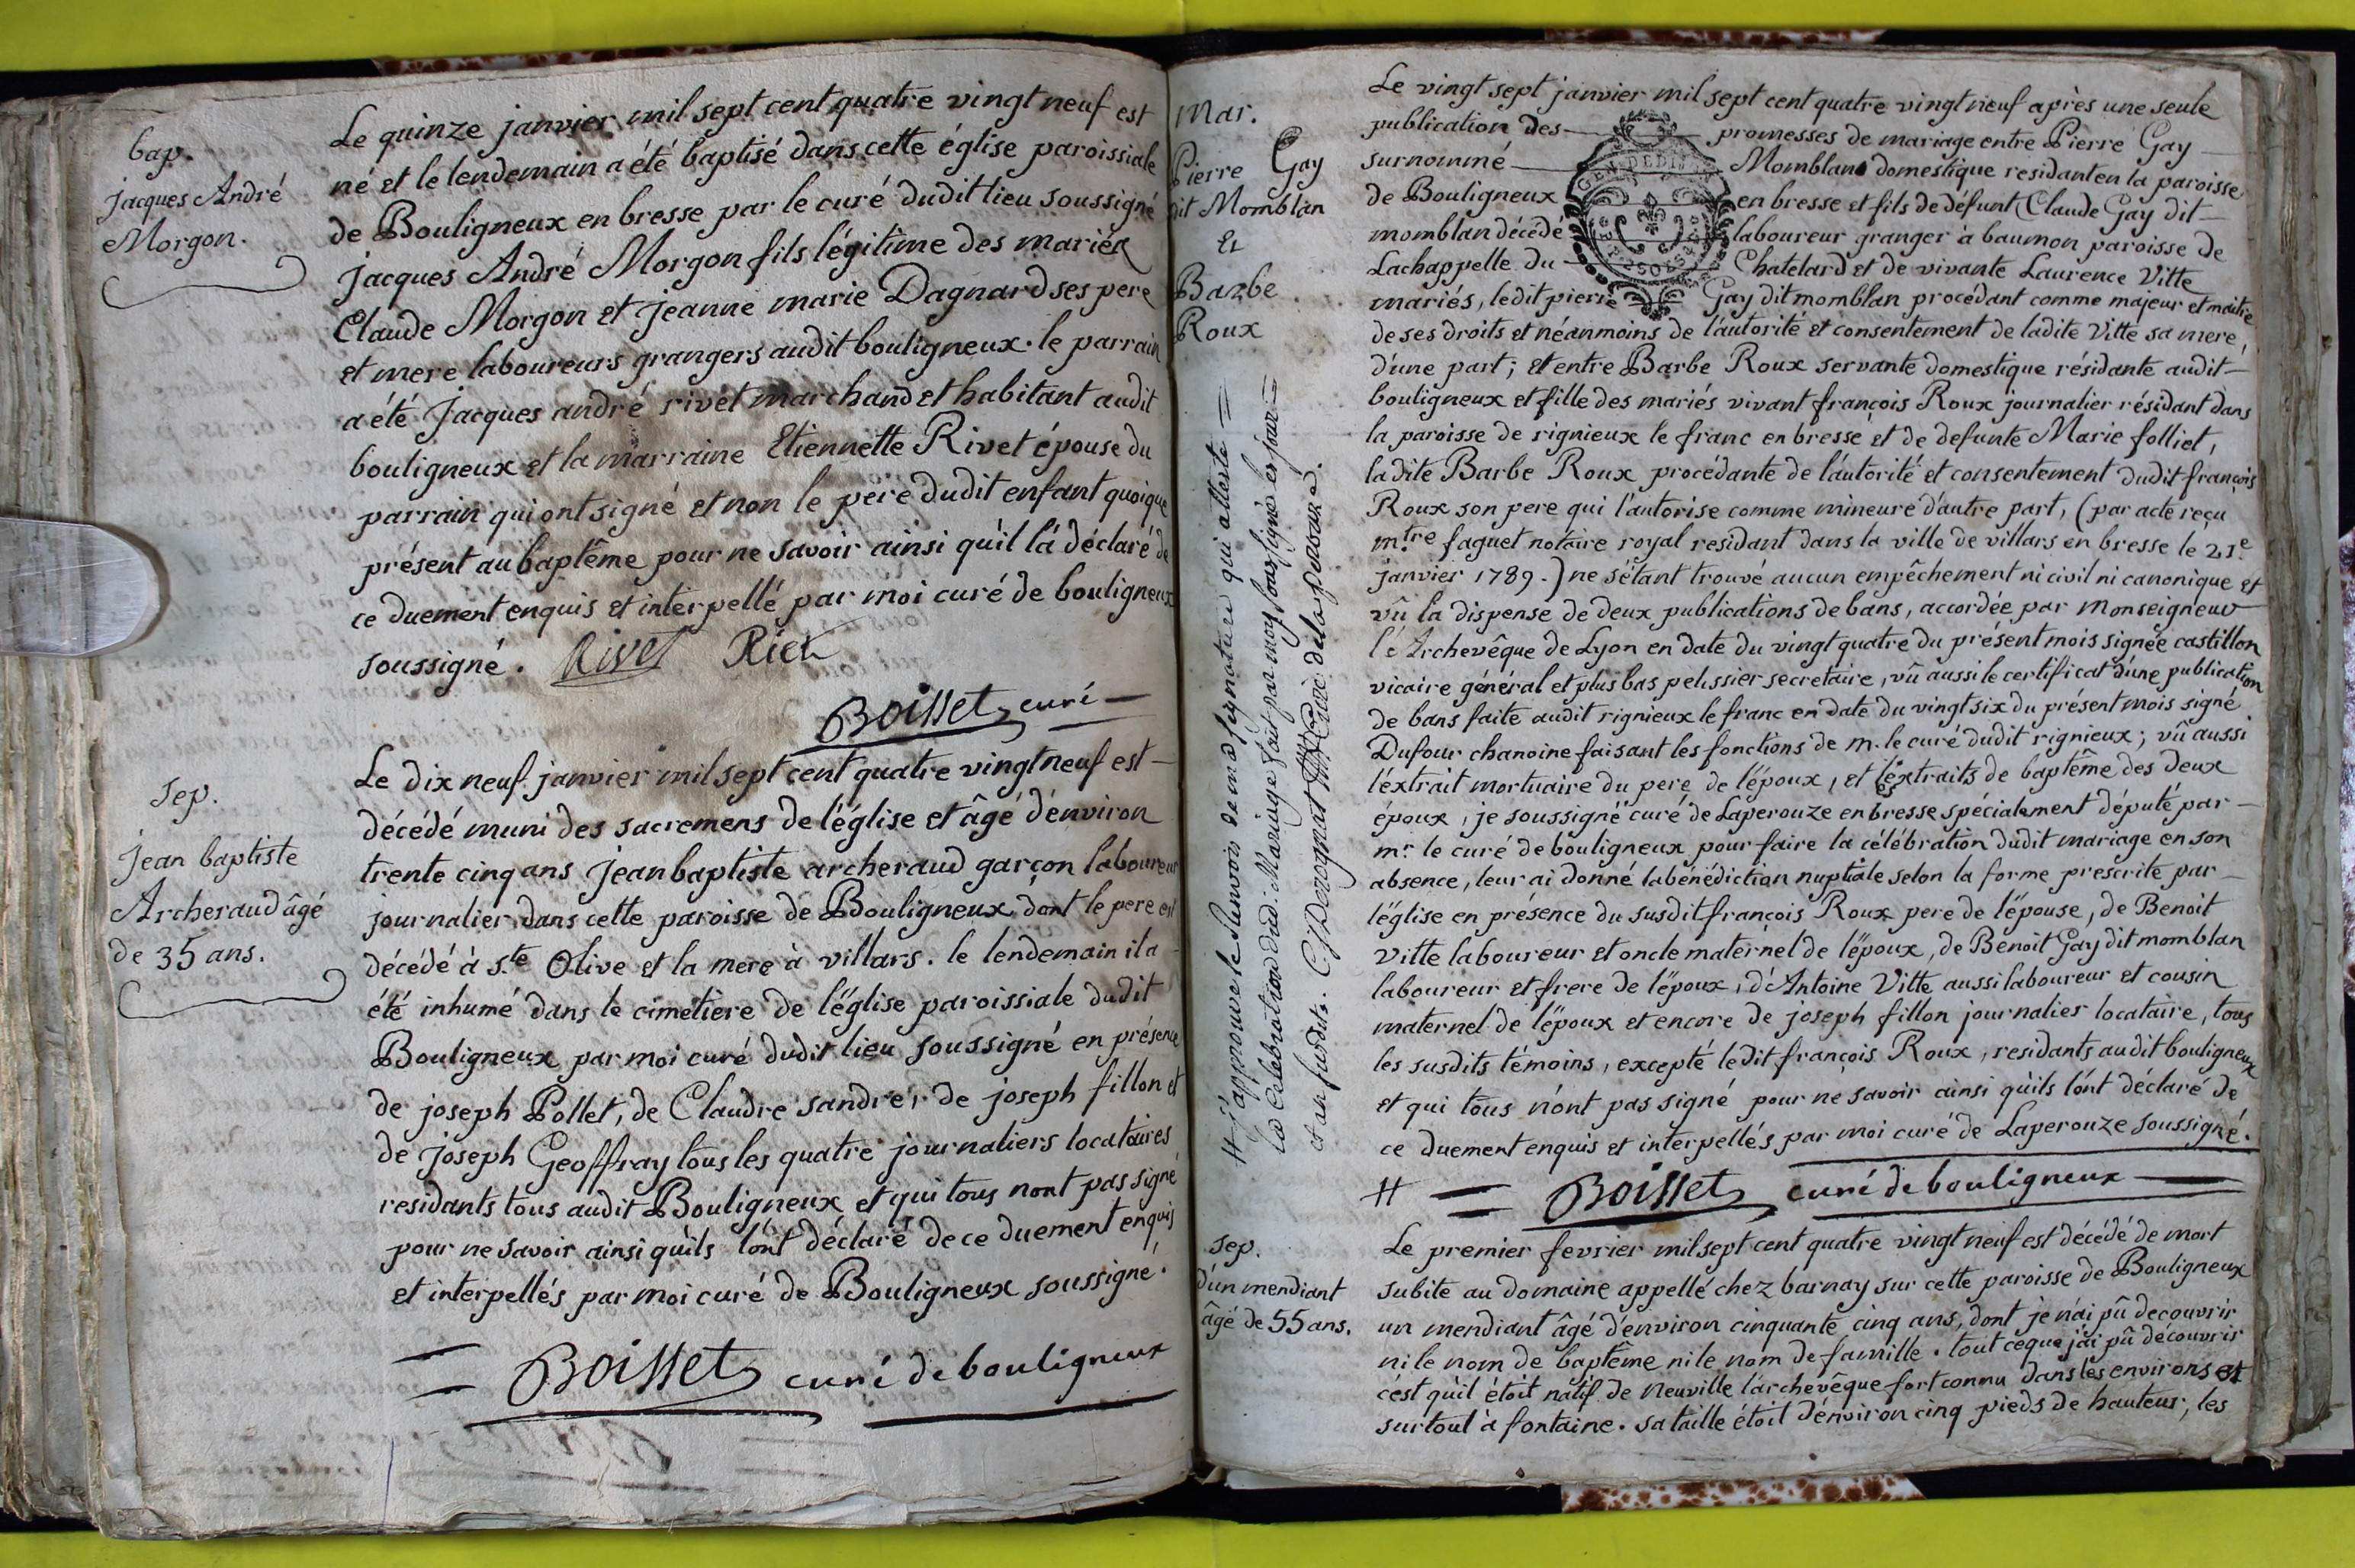 bap.
Jacques André
Morgon.
Le quinze janvier mil sept cent quatre vingt neuf est
né et le lendemain a été baptisé dans cette église paroissiale
de Bouligneux en bresse par le curé dudit lieu soussigné
Jacques André Morgon fils légitime des mariés
Claude Morgon et Jeanne marie Dagnard ses pere
et mere laboureurs grangers audit bouligneux. le parrain
a été Jacques andré rivet marchand et habitant audit
bouligneux et la marraine Etiennette Rivet épouse du
parrain qui ont signé et non le pere dudit enfant quoique
présent au baptême pour ne savoir ainsi qu'il l'a déclaré de
ce duement enquis et interpellé par moi curé de bouligneux
soussigné. Rivet
Boisset curé
Sep.
Jean baptiste
Archeraud âgé
de 35 ans.
Le dix neuf janvier mil sept cent quatre vingt neuf est
décédé muni des sacremens de l'église et âgé d'environ
trente cinq ans Jean baptiste archeraud garçon laboureur
journalier dans cette paroisse de Bouligneux dont le pere est
décédé à S.te Olive et la mere à villars. le lendemain il a
été inhumé dans le cimetiere de l'église paroissiale dudit
Bouligneux par moi curé dudit lieu soussigné en présence
de joseph Pollet, de Claudre sandre, de joseph fillon et
de Joseph Geoffray tous les quatre journaliers locataires
residants tous audit Bouligneux et qui tous n'ont pas signé
pour ne savoir ainsi qu'ils l'ont déclaré de ce duement enquis
et interpellés par moi curé de Bouligneux soussigné.
Boisset curé de bouligneux
Mar.
Pierre Gay
dit Momblan
Et
Barbe
Roux
Le vingt sept janvier mil sept cent quatre vingt neuf après une seule
publication des promesses de mariage entre Pierre Gay
surnommé Momblan domestique residant en la paroisse
de Bouligneux en bresse et fils de défunt Claude Gay dit
momblan décédé laboureur granger à baumon paroisse de
Lachappelle du Chatelard et de vivante Laurence Vitte
mariés, ledit pierre Gay dit momblan procédant comme majeur et maitre
de ses droits et néanmoins de l'autorité et consentement de ladite Vitte sa mere,
d'une part; et entre Barbe Roux servante domestique résidante audit
bouligneux et fille des mariés vivant françois Roux journalier résidant dans
la paroisse de rignieux le franc en bresse et de defunte Marie folliet,
ladite Barbe Roux procédante de l'autorité et consentement dudit françois
Roux son pere qui l'autorise comme mineure d'autre part, (par acte reçu
m.tre faguet notaire royal residant dans la ville de villars en bresse le 21e
janvier 1789.) ne s'étant trouvé aucun empêchement ni civil ni canonique et
vû la dispense de deux publications de bans, accordée par Monseigneur
l'Archevêque de Lyon en date du vingt quatre du présent mois signée castillon
vicaire général et plus bas pelissier secretaire, vû aussi le certificat d'une publication
de bans faite audit rignieux le franc en date du vingt six du présent mois signé
Dufour chanoine faisant les fonctions de m. le curé dudit rignieux; vû aussi
l'extrait mortuaire du pere de l'époux, et les extraits de baptême des deux
époux, je soussigné curé de Laperouze en bresse spécialement député par
mr. le curé de bouligneux pour faire la célébration dudit mariage en son
absence, leur ai donné la bénédiction nuptiale selon la forme prescrite par
l'église en présence du susdit françois Roux pere de l'épouse, de Benoit
Vitte laboureur et oncle maternel de l'époux, de Benoit Gay dit momblan
laboureur et frere de l'époux, d'Antoine Vitte aussi laboureur et cousin
maternel de l'époux et encore de joseph fillon journalier locataire, tous
les susdits témoins, excepté ledit françois Roux, residants audit bouligneux
et qui tous n'ont pas signé pour ne savoir ainsi qu'ils l'ont déclaré de
ce duement enquis et interpellés par moi curé de Laperouze soussigné.
# Boisset curé de bouligneux
# j'approuve le Renvois de ma signature qui atteste
la Célébration dud. Mariage fait par moy soussigné les jour
et an susdits. Derognat Curé de la perouze.
Sep.
d'un mendiant
âgé de 55 ans.
Le premier fevrier mil sept cent quatre vingt neuf est décédé de mort
subite au domaine appellé chez barnay sur cette paroisse de Bouligneux
un mendiant âgé d'environ cinquante cinq ans, dont je n'ai pû decouvrir
ni le nom de baptême ni le nom de famille. tout ce que j'ai pû découvrir
c'est qu'il étoit natif de Neuville l'archevêque fort connu dans les environs et
surtout à fontaine. sa taille étoit d'environ cinq pieds de hauteur, les